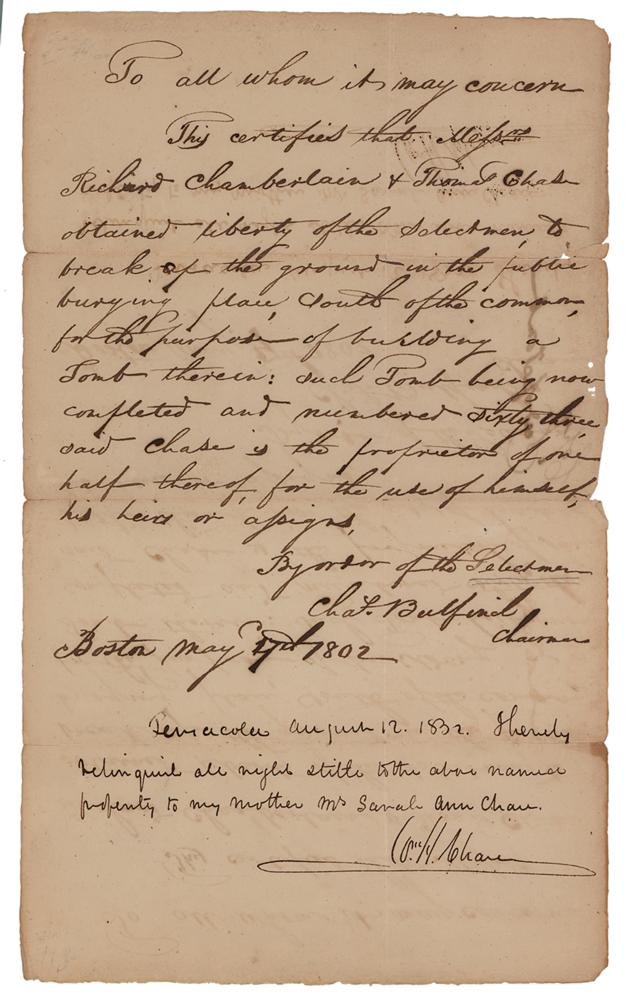 To all whom it may concern
This certifies that Messrs
Richard Chamberlain & Thomas Chase
obtained liberty of the Selectmen, to
break up the ground in the public
burying place, South of the common,
for the purpose of building a
Tomb therein: such Tomb being now
completed and numbered sixty three
said Chase is the proprietor of one
half thereof, for the use of himself,
his heirs or assigns.
By order of the Selectmen
Chas. Bulfinch
Chairman
Boston May 1802
Pensacola August 12. 1832. I hereby
relinquish all right & title to the above named
property to my mother Mrs Sarah Ann Chase.
Wm H. Chase